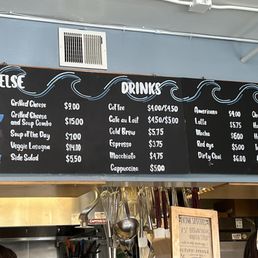 ELSE
Grilled Cheese $9.00
Grilled Cheese and Soup Combo $15.00
Soup of the Day $7.00
Veggie Lasagna $14.00
Side Salad $5.50
DRINKS
Coffee $4.00/$4.50
Cafe au Lait $4.50/$5.00
Cold Brew $5.75
Espresso $3.75
Macchiato $4.75
Cappuccino $5.00
Americano $4.00
Latte $5.75
Mocha $6.00
Red eye $5.00
Dirty Chai $6.00